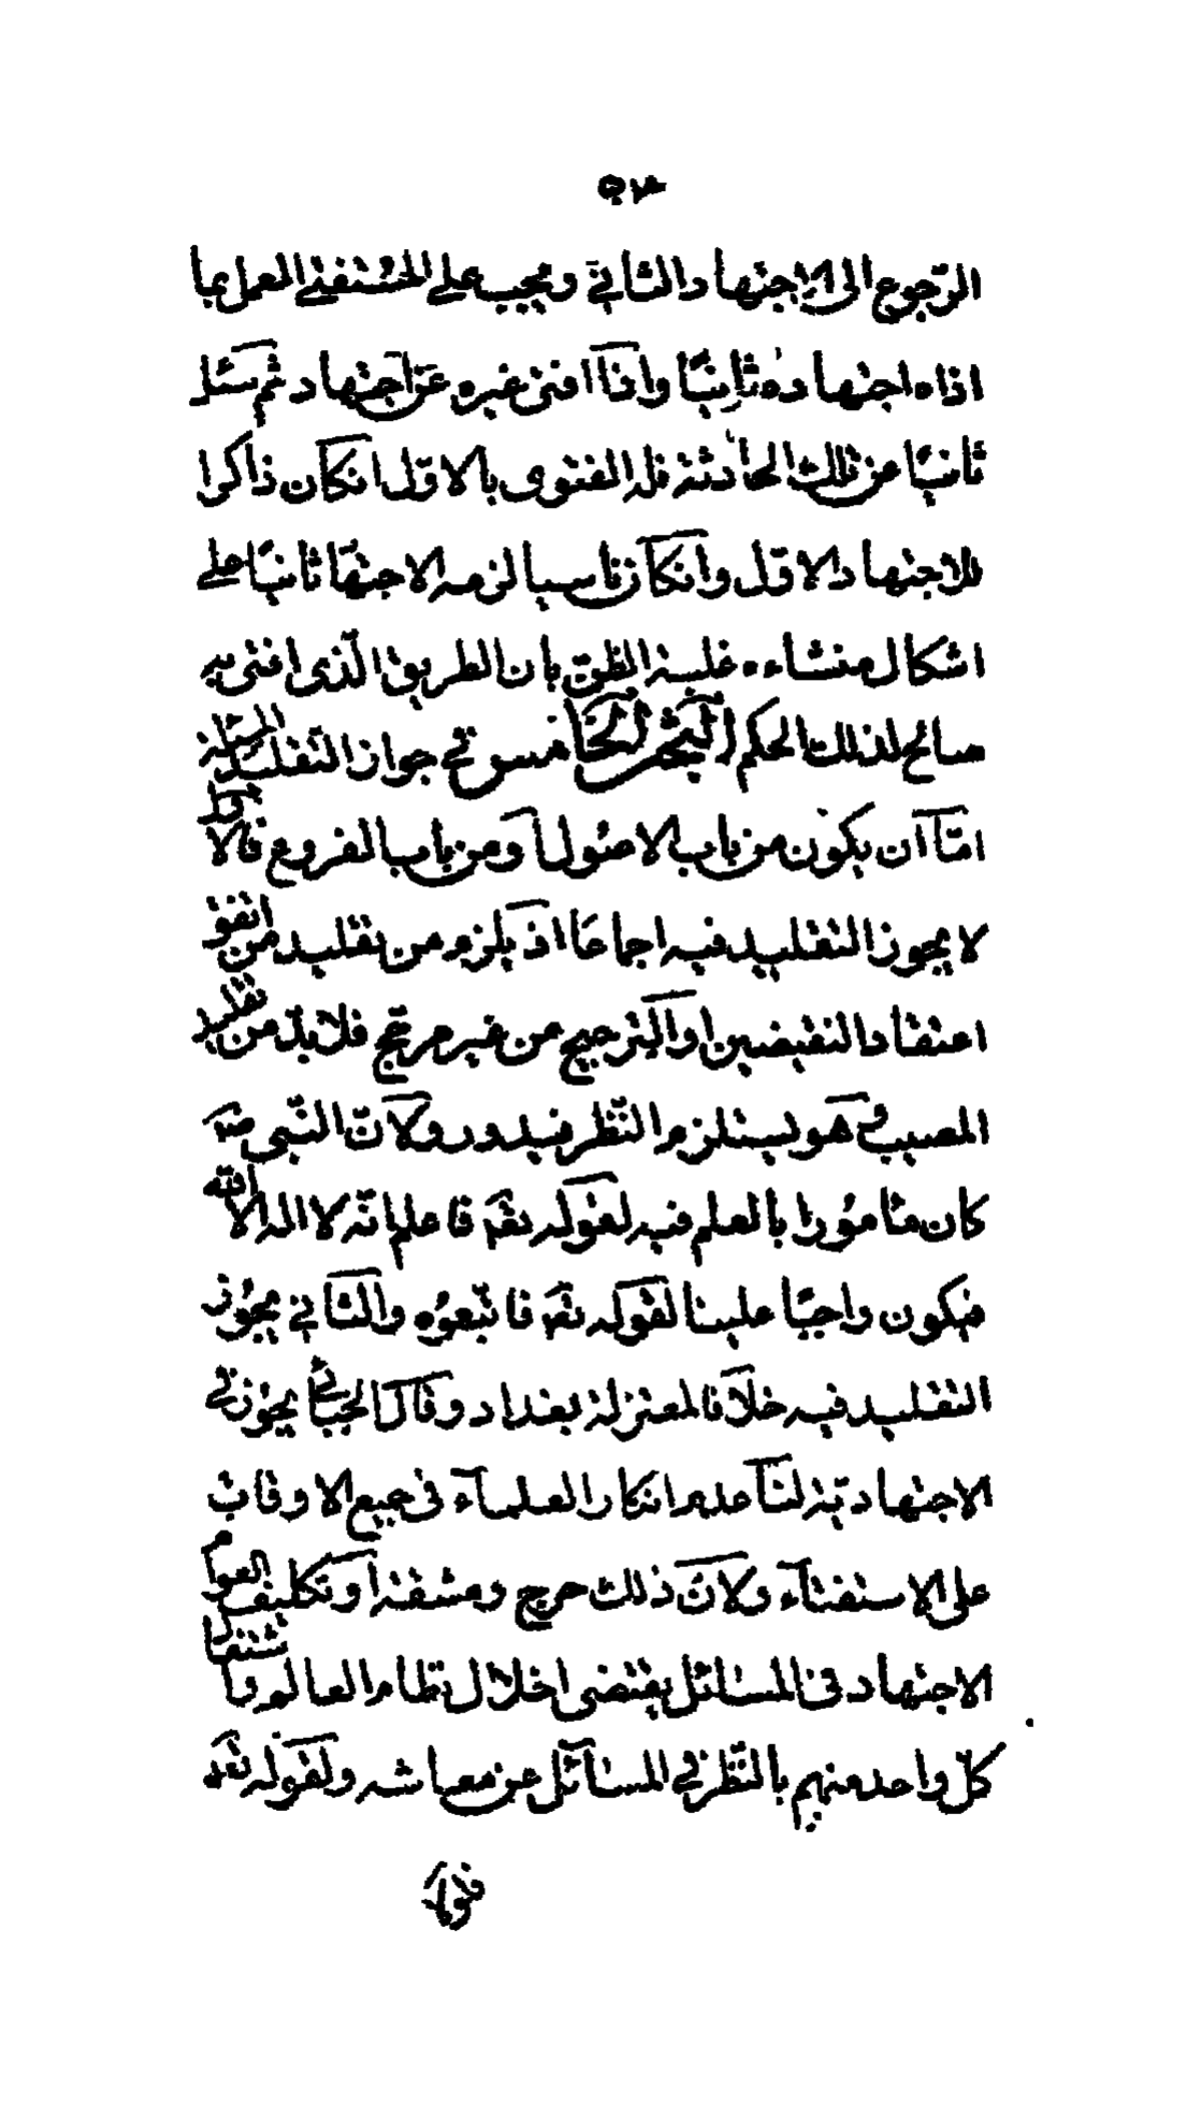 ٥٣
الرّجوع الى الاجتهاد الثانى ويجب على المستفتى العمل بما
اداه اجتهاده ثانيًا واذا افتى غيره عن اجتهاد ثم سئل
ثانيًا عن تلك الحادثة فله الفتوى بالاوّل انكان ذاكرا
للاجتهاد الاوّل وانكان ناسيا لزمه الاجتهاد ثانيًا على
اشكال منشاءه غلبة الظنّ بان الطريق الّذى افتى به
صالح لذلك الحكم البحث الخامس فى جواز التّقليد المسئلة
امّا ان يكون من باب الاصُول او من باب الفروع فالاوّل
لا يجوز التقليد فيه اجماعًا اذ يلزم من تقليد من اتفق
اعتقاد النقيضين او الترجيح من غير مرجّح فلا بدّ من تقليد
المصيب وهو يستلزم النّظر فيدور ولانّ النّبى صۤ
كان مأمورا بالعلم فيه لقوله تعۤ فاعلم انّه لا اله الا الله
فيكون واجبًا علينا لقوله تعۤ فاتّبعوُه والثانى يجوُز
التقليد فيه خلافا لمعتزلة بغداد وقال الجبائى يجوز فى
الاجتهاديّة لنا عدم انكار العلمآء فى جميع الاوقات
على الاستفتآء ولانّ ذلك حرج ومشقة اذ تكليف العوام
الاجتهاد فى المسائل يقتضى اخلال نظام العالم واشتغال
كلّ واحد منهم بالنّظر فى المسآئل عن معاشه ولقوله تعۤ
فلولا